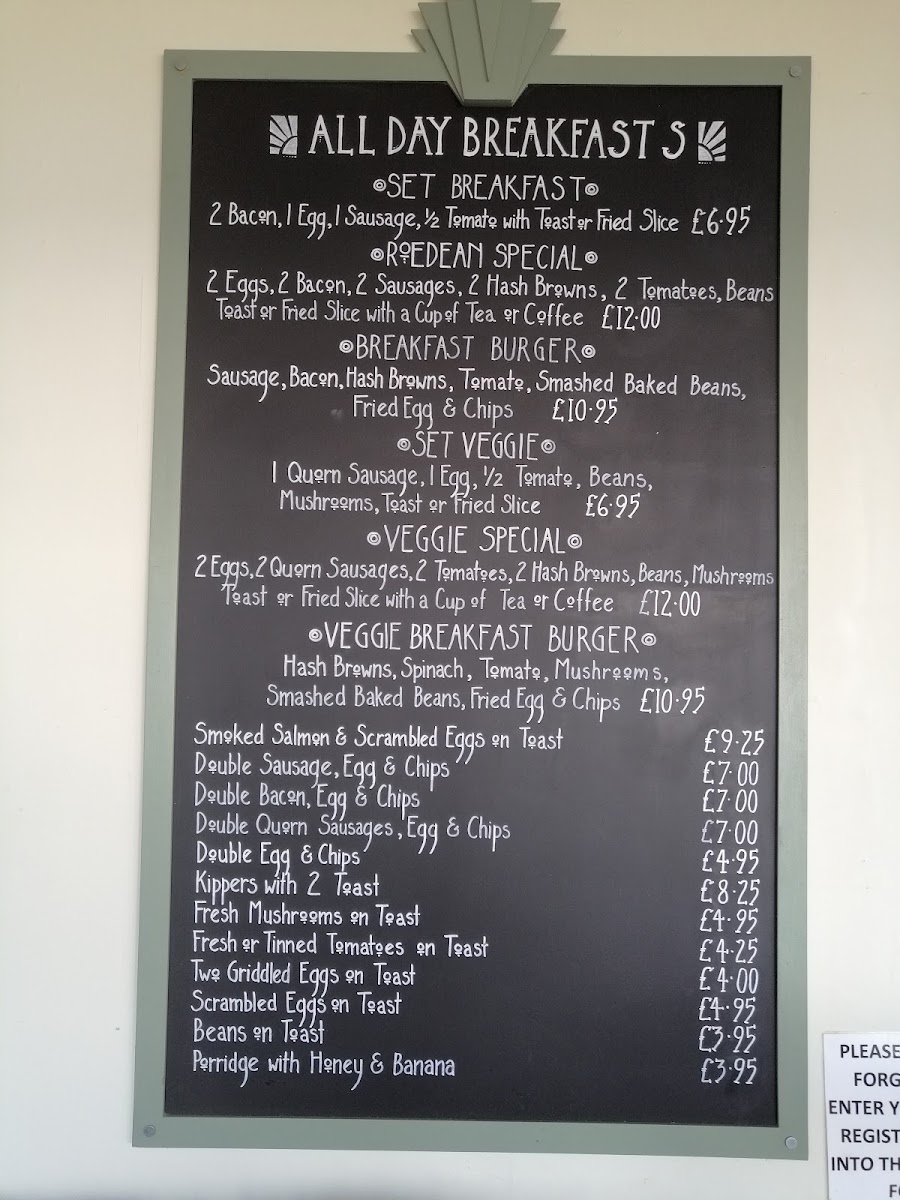 ALL DAY BREAKFASTS
SET BREAKFAST
2 Bacon, 1 Egg, 1 Sausage, ½ Tomato with Toast or Fried Slice £6·95
ROEDEAN SPECIAL
2 Eggs, 2 Bacon, 2 Sausages, 2 Hash Browns, 2 Tomatoes, Beans
Toast or Fried Slice with a Cup of Tea or Coffee £12·00
BREAKFAST BURGER
Sausage, Bacon, Hash Browns, Tomato, Smashed Baked Beans,
Fried Egg & Chips £10·95
SET VEGGIE
1 Quorn Sausage, 1 Egg, ½ Tomato, Beans,
Mushrooms, Toast or Fried Slice £6·95
VEGGIE SPECIAL
2 Eggs, 2 Quorn Sausages, 2 Tomatoes, 2 Hash Browns, Beans, Mushrooms
Toast or Fried Slice with a Cup of Tea or Coffee £12·00
VEGGIE BREAKFAST BURGER
Hash Browns, Spinach, Tomato, Mushrooms,
Smashed Baked Beans, Fried Egg & Chips £10·95
Smoked Salmon & Scrambled Eggs on Toast £9·25
Double Sausage, Egg & Chips £7·00
Double Bacon, Egg & Chips £7·00
Double Quorn Sausages, Egg & Chips £7·00
Double Egg & Chips £4·95
Kippers with 2 Toast £8·25
Fresh Mushrooms on Toast £4·95
Fresh or Tinned Tomatoes on Toast £4·25
Two Griddled Eggs on Toast £4·00
Scrambled Eggs on Toast £4·95
Beans on Toast £3·95
Porridge with Honey & Banana £3·95
PLEASE
FORG
ENTER Y
REGIST
INTO TH
F